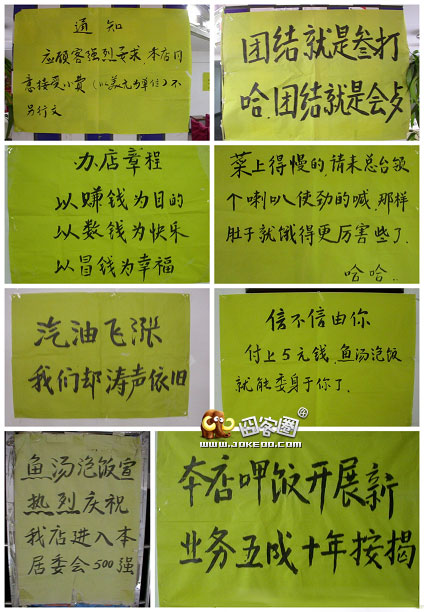 通知
应顾客强烈要求 本店同
意接受小费(以美元为单位)不
另行文
团结就是叁打
哈.团结就是会歺
办店章程
以赚钱为目的
以数钱为快乐
以冒钱为幸福
菜上得慢的,请来总台领
个喇叭使劲的喊,那样
肚子就饿得更厉害些了.
哈哈..
汽油飞涨
我们却涛声依旧
信不信由你
付上5元钱、鱼汤泡饭
就能委身于你了.
囧客圈
www.JOKEOO.com
鱼汤泡饭宣
热烈庆祝
我店进入本
居委会500强
本店呷饭开展新
业务五成十年按揭